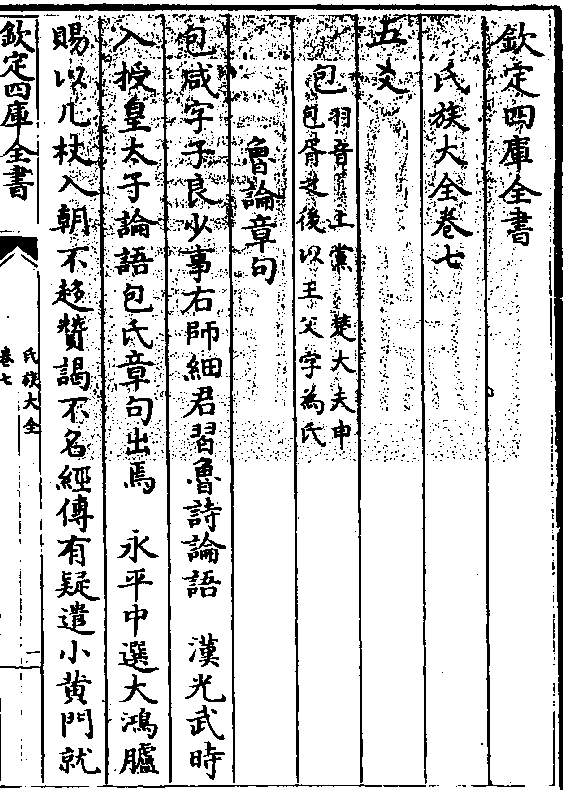 欽定四庫全書
氏族大全卷七
五爻
包 羽音 上黨 楚大夫申
包胥之後以王父字為氏
魯論章句
包咸字子良少事右師細君習魯詩論語 漢光武時
入授皇太子論語包氏章句出焉 永平中選大鴻臚
賜以几杖入朝不趨贊謁不名經傳有疑遣小黃門就
欽定四庫全書
氏族大全
卷七
一